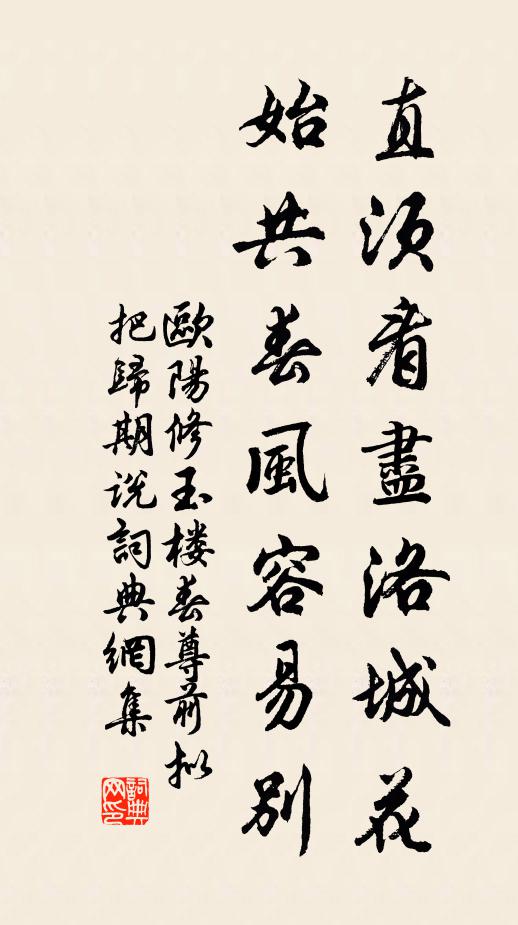 直須看盡洛城花
始共春風容易別
歐陽修玉楼春尊前拟
把歸期说詞典網集
詞典网印